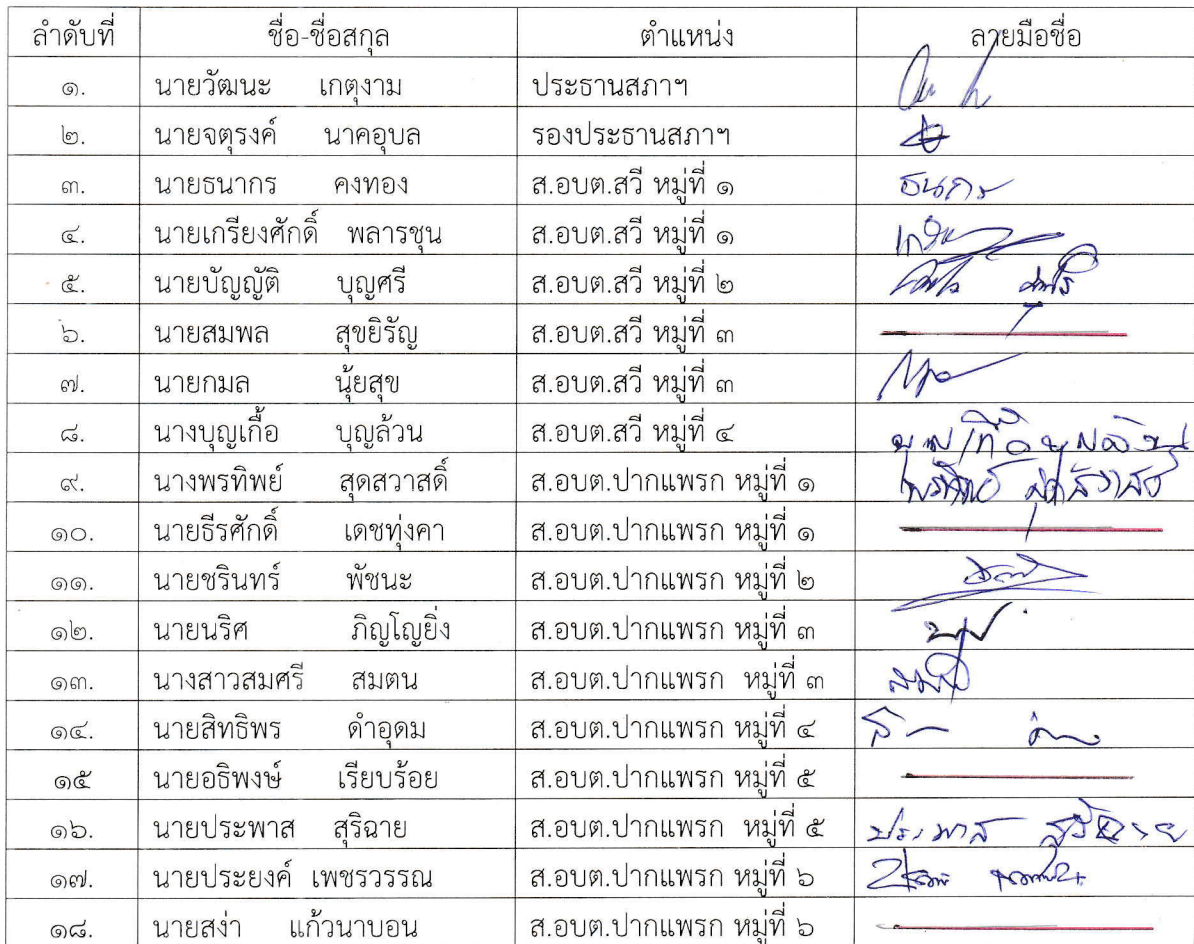 ลำดับที่ ชื่อ-ชื่อสกุล ตำแหน่ง ลายมือชื่อ
๑. นายวัฒนะ เกตุงาม ประธานสภาฯ
๒. นายจตุรงค์ นาคอุบล รองประธานสภาฯ
๓. นายธนากร คงทอง ส.อบต.สวี หมู่ที่ ๑ ธนกร
๔. นายเกรียงศักดิ์ พลารชุน ส.อบต.สวี หมู่ที่ ๑
๕. นายบัญญัติ บุญศรี ส.อบต.สวี หมู่ที่ ๒
๖. นายสมพล สุขยิรัญ ส.อบต.สวี หมู่ที่ ๓
๗. นายกมล นุ้ยสุข ส.อบต.สวี หมู่ที่ ๓
๘. นางบุญเกื้อ บุญล้วน ส.อบต.สวี หมู่ที่ ๔
๙. นางพรทิพย์ สุดสวาสดิ์ ส.อบต.ปากแพรก หมู่ที่ ๑
๑๐. นายธีรศักดิ์ เดชทุ่งคา ส.อบต.ปากแพรก หมู่ที่ ๑
๑๑. นายชรินทร์ พัชนะ ส.อบต.ปากแพรก หมู่ที่ ๒
๑๒. นายนริศ ภิญโญยิ่ง ส.อบต.ปากแพรก หมู่ที่ ๓
๑๓. นางสาวสมศรี สมตน ส.อบต.ปากแพรก หมู่ที่ ๓
๑๔. นายสิทธิพร ดำอุดม ส.อบต.ปากแพรก หมู่ที่ ๔
๑๕ นายอธิพงษ์ เรียบร้อย ส.อบต.ปากแพรก หมู่ที่ ๕
๑๖. นายประพาส สุริฉาย ส.อบต.ปากแพรก หมู่ที่ ๕ ประพาส สุริฉาย
๑๗. นายประยงค์ เพชรวรรณ ส.อบต.ปากแพรก หมู่ที่ ๖
๑๘. นายสง่า แก้วนาบอน ส.อบต.ปากแพรก หมู่ที่ ๖